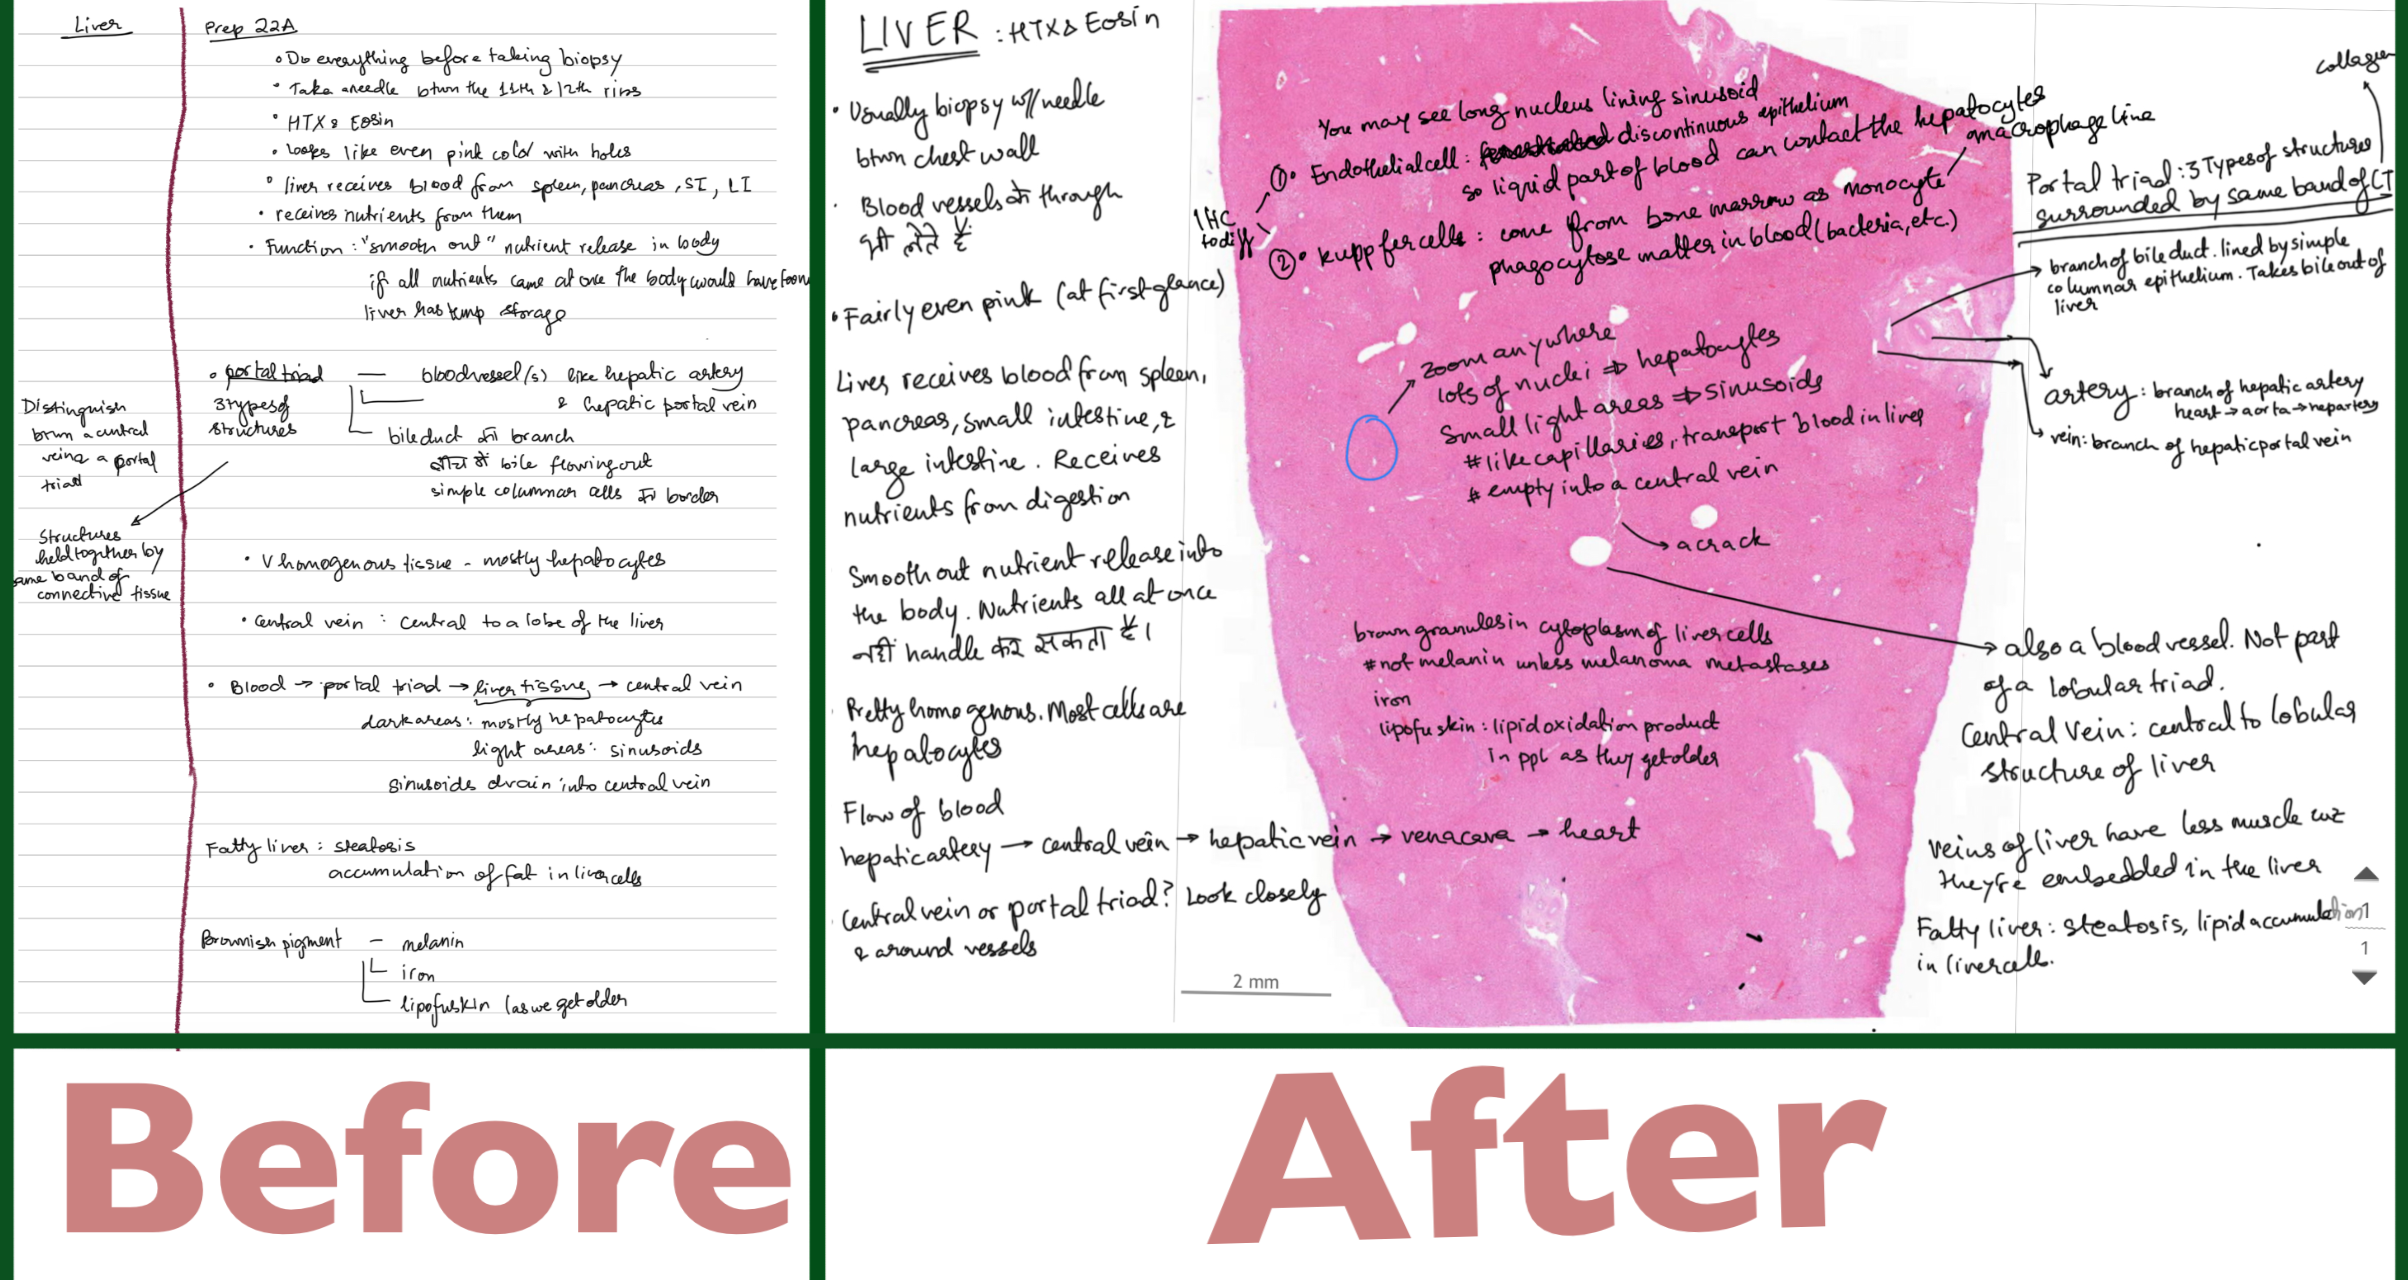 Liver
Prep 22A
• Do everything before taking biopsy
• Take a needle btwn the 11th & 12th ribs
• HTX & Eosin
• Looks like even pink color with holes
• liver receives blood from spleen, pancreas, SI, LI
• receives nutrients from them
• Function: "smooth out" nutrient release in body
if all nutrients came at once the body would have
liver has temp storage
• portal triad — bloodvessel(s) like hepatic artery
& hepatic portal vein
3 types of
structures
bileduct का branch
bile flowing out
simple columnar cells का border
Distinguish
btwn a central
vein & a portal
triad
Structures
held together by
same band of
connective tissue
• V homogenous tissue - mostly hepatocytes
• Central vein : central to a lobe of the liver
• Blood → portal triad → liver tissue → central vein
dark areas: mostly hepatocytes
light areas: sinusoids
sinusoids drain into central vein
Fatty liver : steatosis
accumulation of fat in liver cells
Brownish pigment — melanin
iron
lipofuskin (as we get older
LIVER : HTX & Eosin
• Usually biopsy w/ needle
btwn chest wall
• Blood vessels के through
है
• Fairly even pink (at first glance)
Liver receives blood from spleen,
pancreas, small intestine, &
large intestine. Receives
nutrients from digestion
Smooth out nutrient release into
the body. Nutrients all at once
नहीं handle कर सकता है।
Pretty homogenous. Most cells are
hepatocytes
Flow of blood
hepatic artery → central vein → hepatic vein → vena cava → heart
Central vein or portal triad? Look closely
& around vessels
You may see long nucleus lining sinusoid
①• Endothelial cell: discontinuous epithelium
so liquid part of blood can contact the hepatocytes
IHC
to diff
②• kuppfer cells : come from bone marrow as monocyte
macrophage line
phagocytose matter in blood (bacteria, etc.)
zoom anywhere
lots of nuclei ⇒ hepatocytes
Small light areas ⇒ sinusoids
# like capillaries, transport blood in liver
# empty into a central vein
a crack
brown granules in cytoplasm of liver cells
# not melanin unless melanoma metastases
iron
lipofuskin : lipid oxidation product
in ppl as they get older
2 mm
collagen
Portal triad: 3 Types of structures
surrounded by same band of CT
branch of bile duct. lined by simple
columnar epithelium. Takes bile out of
liver
artery : branch of hepatic artery
heart → aorta → hep artery
vein: branch of hepatic portal vein
also a blood vessel. Not part
of a lobular triad.
Central Vein: central to lobular
structure of liver
Veins of liver have less muscle cuz
they're embedded in the liver
Fatty liver: steatosis, lipid accumulation
in liver cells.
1
1
Before
After